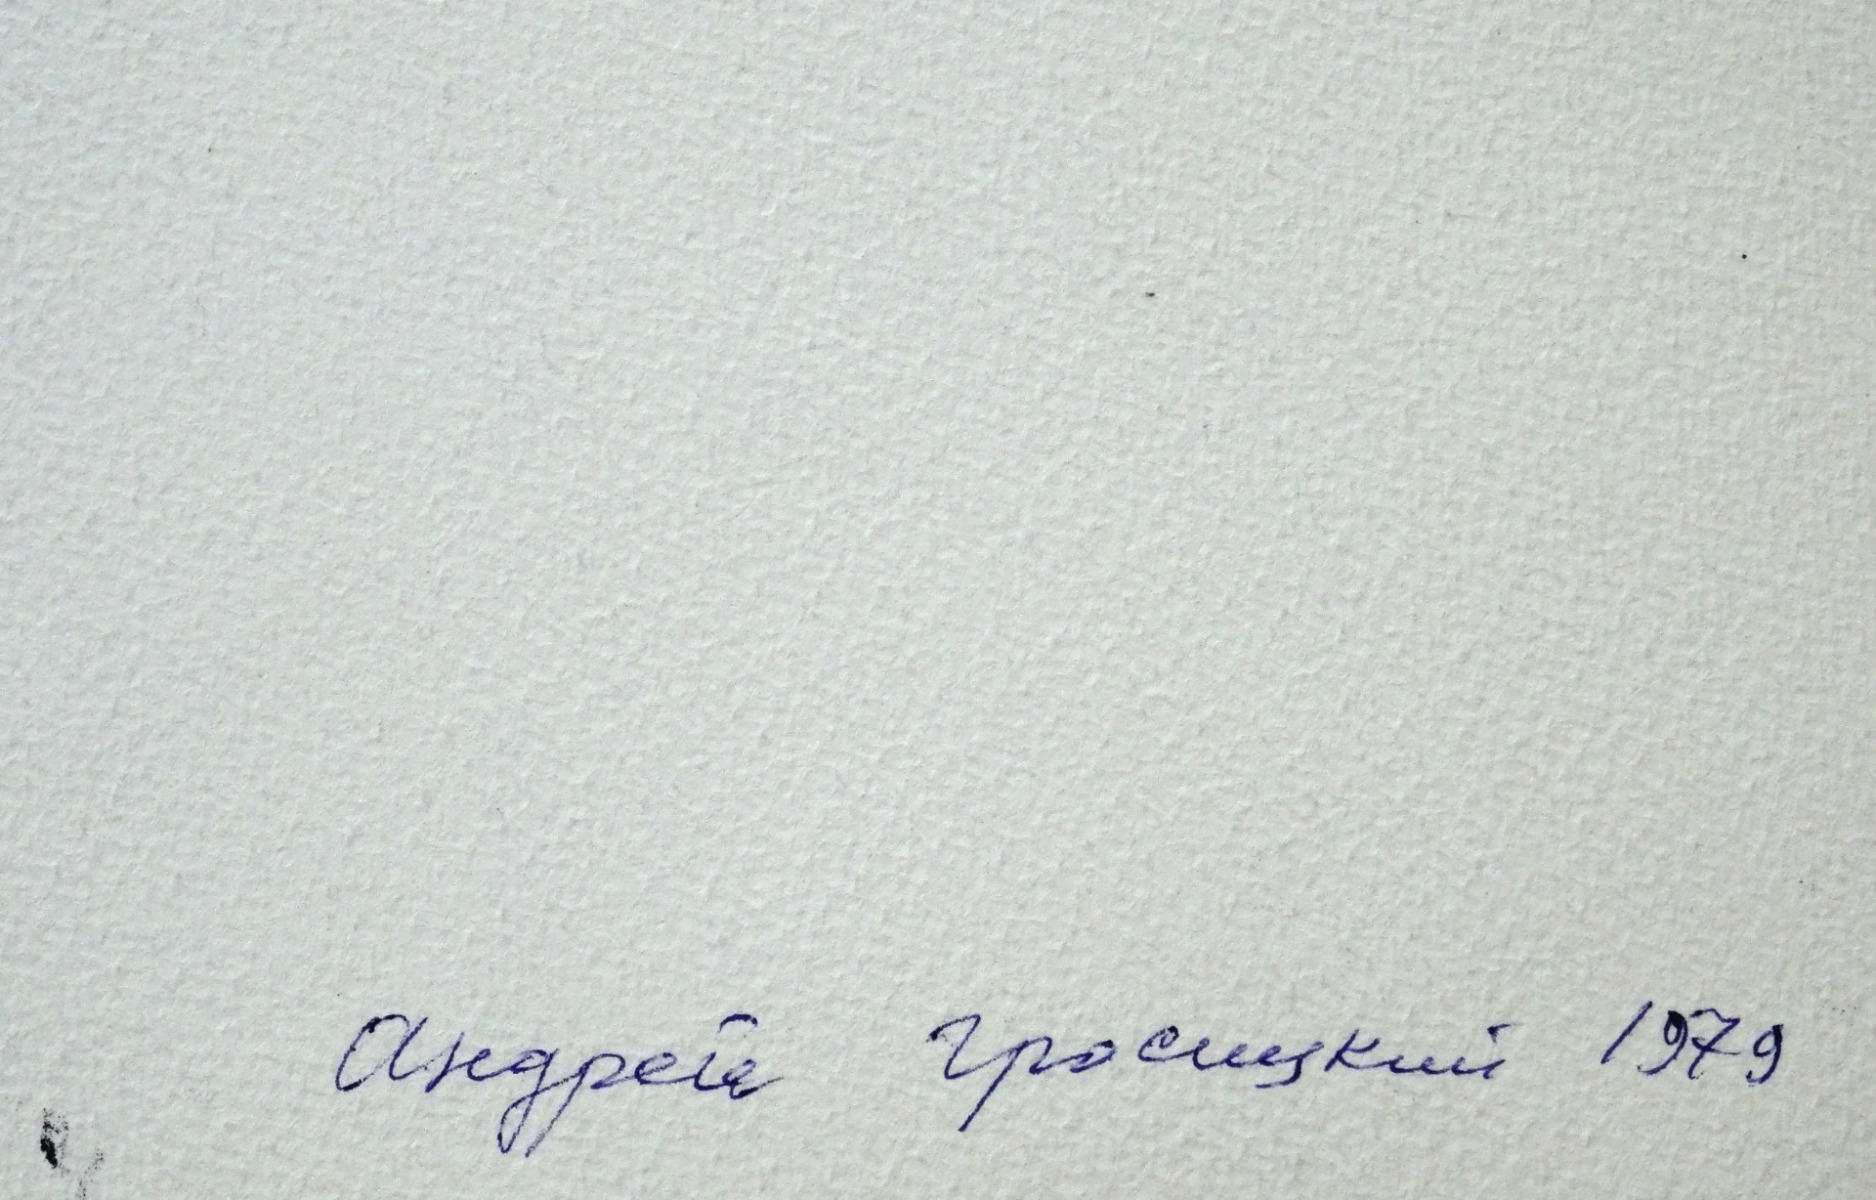 Андрей Гросицкий 1979